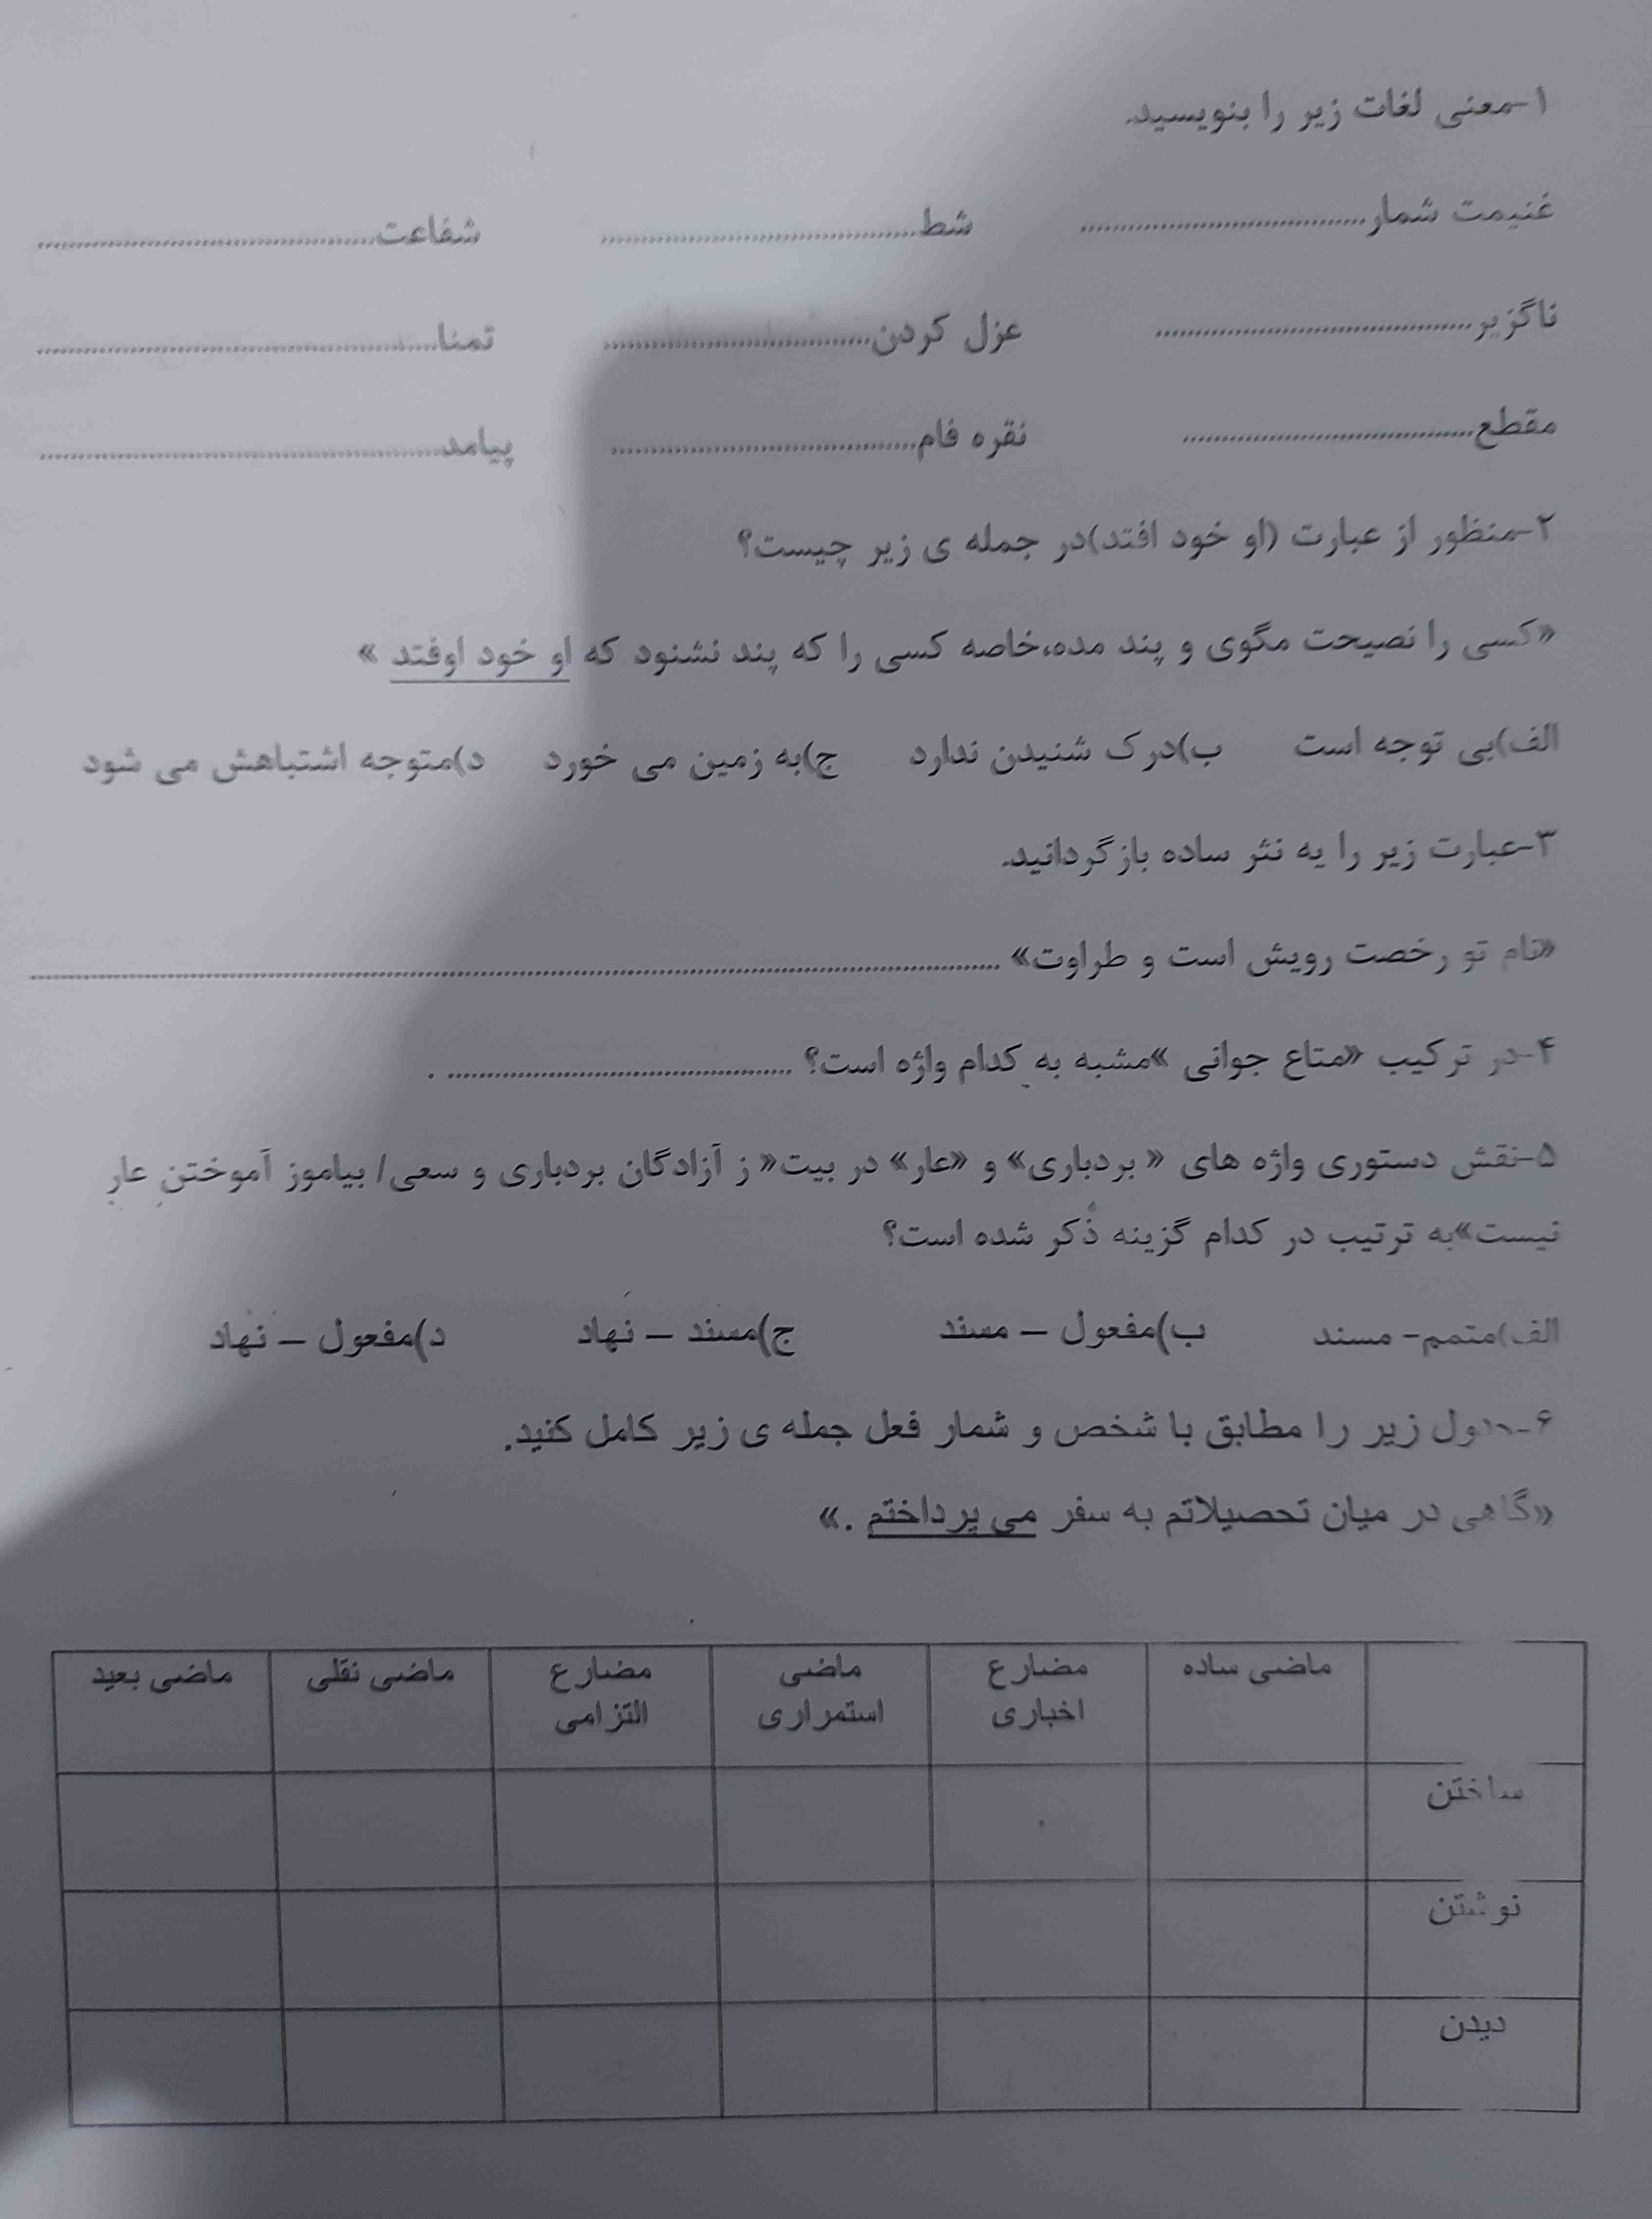 ۱-معنی لغات زیر را بنویسید.
غنیمت شمار.................................... شط........................................ شفاعت...........................................
ناگزیر........................................ عزل کردن.................................. تمنا...................................................
مقطع..................................... نقره فام....................................... پیامد...................................................
۲-منظور از عبارت (او خود افتد)در جمله ی زیر چیست؟
«کسی را نصیحت مگوی و پند مده،خاصه کسی را که پند نشنود که او خود اوفتد »
الف)بی توجه است ب)درک شنیدن ندارد ج)به زمین می خورد د)متوجه اشتباهش می شود
۳-عبارت زیر را یه نثر ساده بازگردانید.
«نام تو رخصت رویش است و طراوت» ........................................................................................................................
۴-در ترکیب «متاع جوانی »مشبه به کدام واژه است؟ ............................................ .
۵-نقش دستوری واژه های « بردباری» و «عار» در بیت« ز آزادگان بردباری و سعی/ بیاموز آموختن عار
نیست»به ترتیب در کدام گزینه ذکر شده است؟
الف)متمم- مسند ب)مفعول – مسند ج)مسند – نهاد د)مفعول – نهاد
۶-جدول زیر را مطابق با شخص و شمار فعل جمله ی زیر کامل کنید.
«گاهی در میان تحصیلاتم به سفر می پرداختم .»
ماضی ساده مضارع اخباری ماضی استمراری مضارع التزامی ماضی نقلی ماضی بعید
ساختن
نوشتن
دیدن